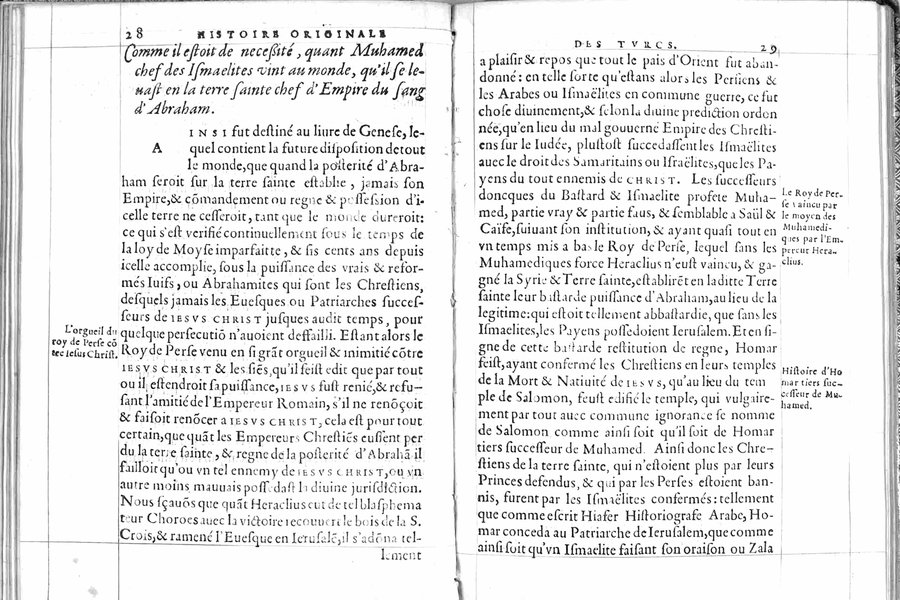 28 HISTOIRE ORIGINALE
Comme il estoit de necessité, quant Muhamed
chef des Ismaelites vint au monde, qu'il se le-
uast en la terre sainte chef d'Empire du sang
d'Abraham.
AINSI fut destiné au liure de Genese, le-
quel contient la future disposition de tout
le monde, que quand la posterité d'Abra-
ham seroit sur la terre sainte establie, jamais son
Empire, & cõmandement ou regne & possession d'i-
celle terre ne cesseroit, tant que le monde dureroit:
ce qui s'est verifié continuellement sous le temps de
la loy de Moyse imparfaitte, & sis cents ans depuis
icelle accomplie, sous la puissance des vrais & refor-
més Iuifs, ou Abrahamites qui sont les Chrestiens,
desquels jamais les Euesques ou Patriarches succes-
seurs de IESVS CHRIST jusques audit temps, pour
quelque persecutiõ n'auoient deffailli. Estant alors le
Roy de Perse venu en si grãt orgueil & inimitié cõtre
IESVS CHRIST & les siẽs, qu'il feist edit que par tout
ou il estendroit sa puissance, IESVS fust renié, & refu-
sant l'amitié de l'Empereur Romain, s'il ne renõçoit
& faisoit renõcer a IESVS CHRIST, cela est pour tout
certain, que quãt les Empereurs Chrestiẽs eussent per
du la terre sainte, & regne de la posterité d'Abrahã il
failloit qu'ou vn tel ennemy de IESVS CHRIST, ou vn
autre moins mauuais possedast la diuine jurisdiction.
Nous sçauõs que quãt Heraclius eut de tel blasphema
teur Choroes auec la victoire recouuert le bois de la S.
Crois, & ramené l'Euesque en Ierusalẽ, il s'adõna tel-
lement
L'orgueil du
roy de Perse cõ
tre Iesus Christ.
DES TVRCS. 29
a plaisir & repos que tout le païs d'Orient fut aban-
donné: en telle sorte qu'estans alors les Persiens &
les Arabes ou Ismaëlites en commune guerre, ce fut
chose diuinement, & selon la diuine prediction ordon
née, qu'en lieu du mal gouuerné Empire des Chresti-
ens sur le Iudée, plustost succedassent les Ismaëlites
auec le droit des Samaritains ou Israëlites, que les Pa-
yens du tout ennemis de CHRIST. Les successeurs
doncques du Bastard & Ismaelite profete Muha-
med, partie vray & partie faus, & semblable a Saül &
Caïfe, suiuant son institution, & ayant quasi tout en
vn temps mis a bas le Roy de Perse, lequel sans les
Muhamediques force Heraclius n'eust vaincu, & ga-
gné la Syrie & Terre sainte, establirẽt en laditte Terre
sainte leur bastarde puissance d'Abraham, au lieu de la
legitime: qui estoit tellement abbastardie, que sans les
Ismaelites, les Payens possedoient Ierusalem. Et en si-
gne de cette bastarde restitution de regne, Homar
feist, ayant confermé les Chrestiens en leurs temples
de la Mort & Natiuité de IESVS, qu'au lieu du tem
ple de Salomon, feust edifié le temple, qui vulgaire-
ment par tout auec commune ignorance se nomme
de Salomon comme ainsi soit qu'il soit de Homar
tiers successeur de Muhamed. Ainsi donc les Chre-
stiens de la terre sainte, qui n'estoient plus par leurs
Princes defendus, & qui par les Perses estoient ban-
nis, furent par les Ismaëlites confermés: tellement
que comme escrit Hiafer Historiografe Arabe, Ho-
mar conceda au Patriarche de Ierusalem, que comme
ainsi soit qu'vn Ismaelite faisant son oraison ou Zala
Le Roy de Per-
se vaincu par
le moyen des
Muhamedi-
ques par l'Em-
pereur Hera-
clius.
Histoire d'Ho
mar tiers suc-
cesseur de Mu-
hamed.